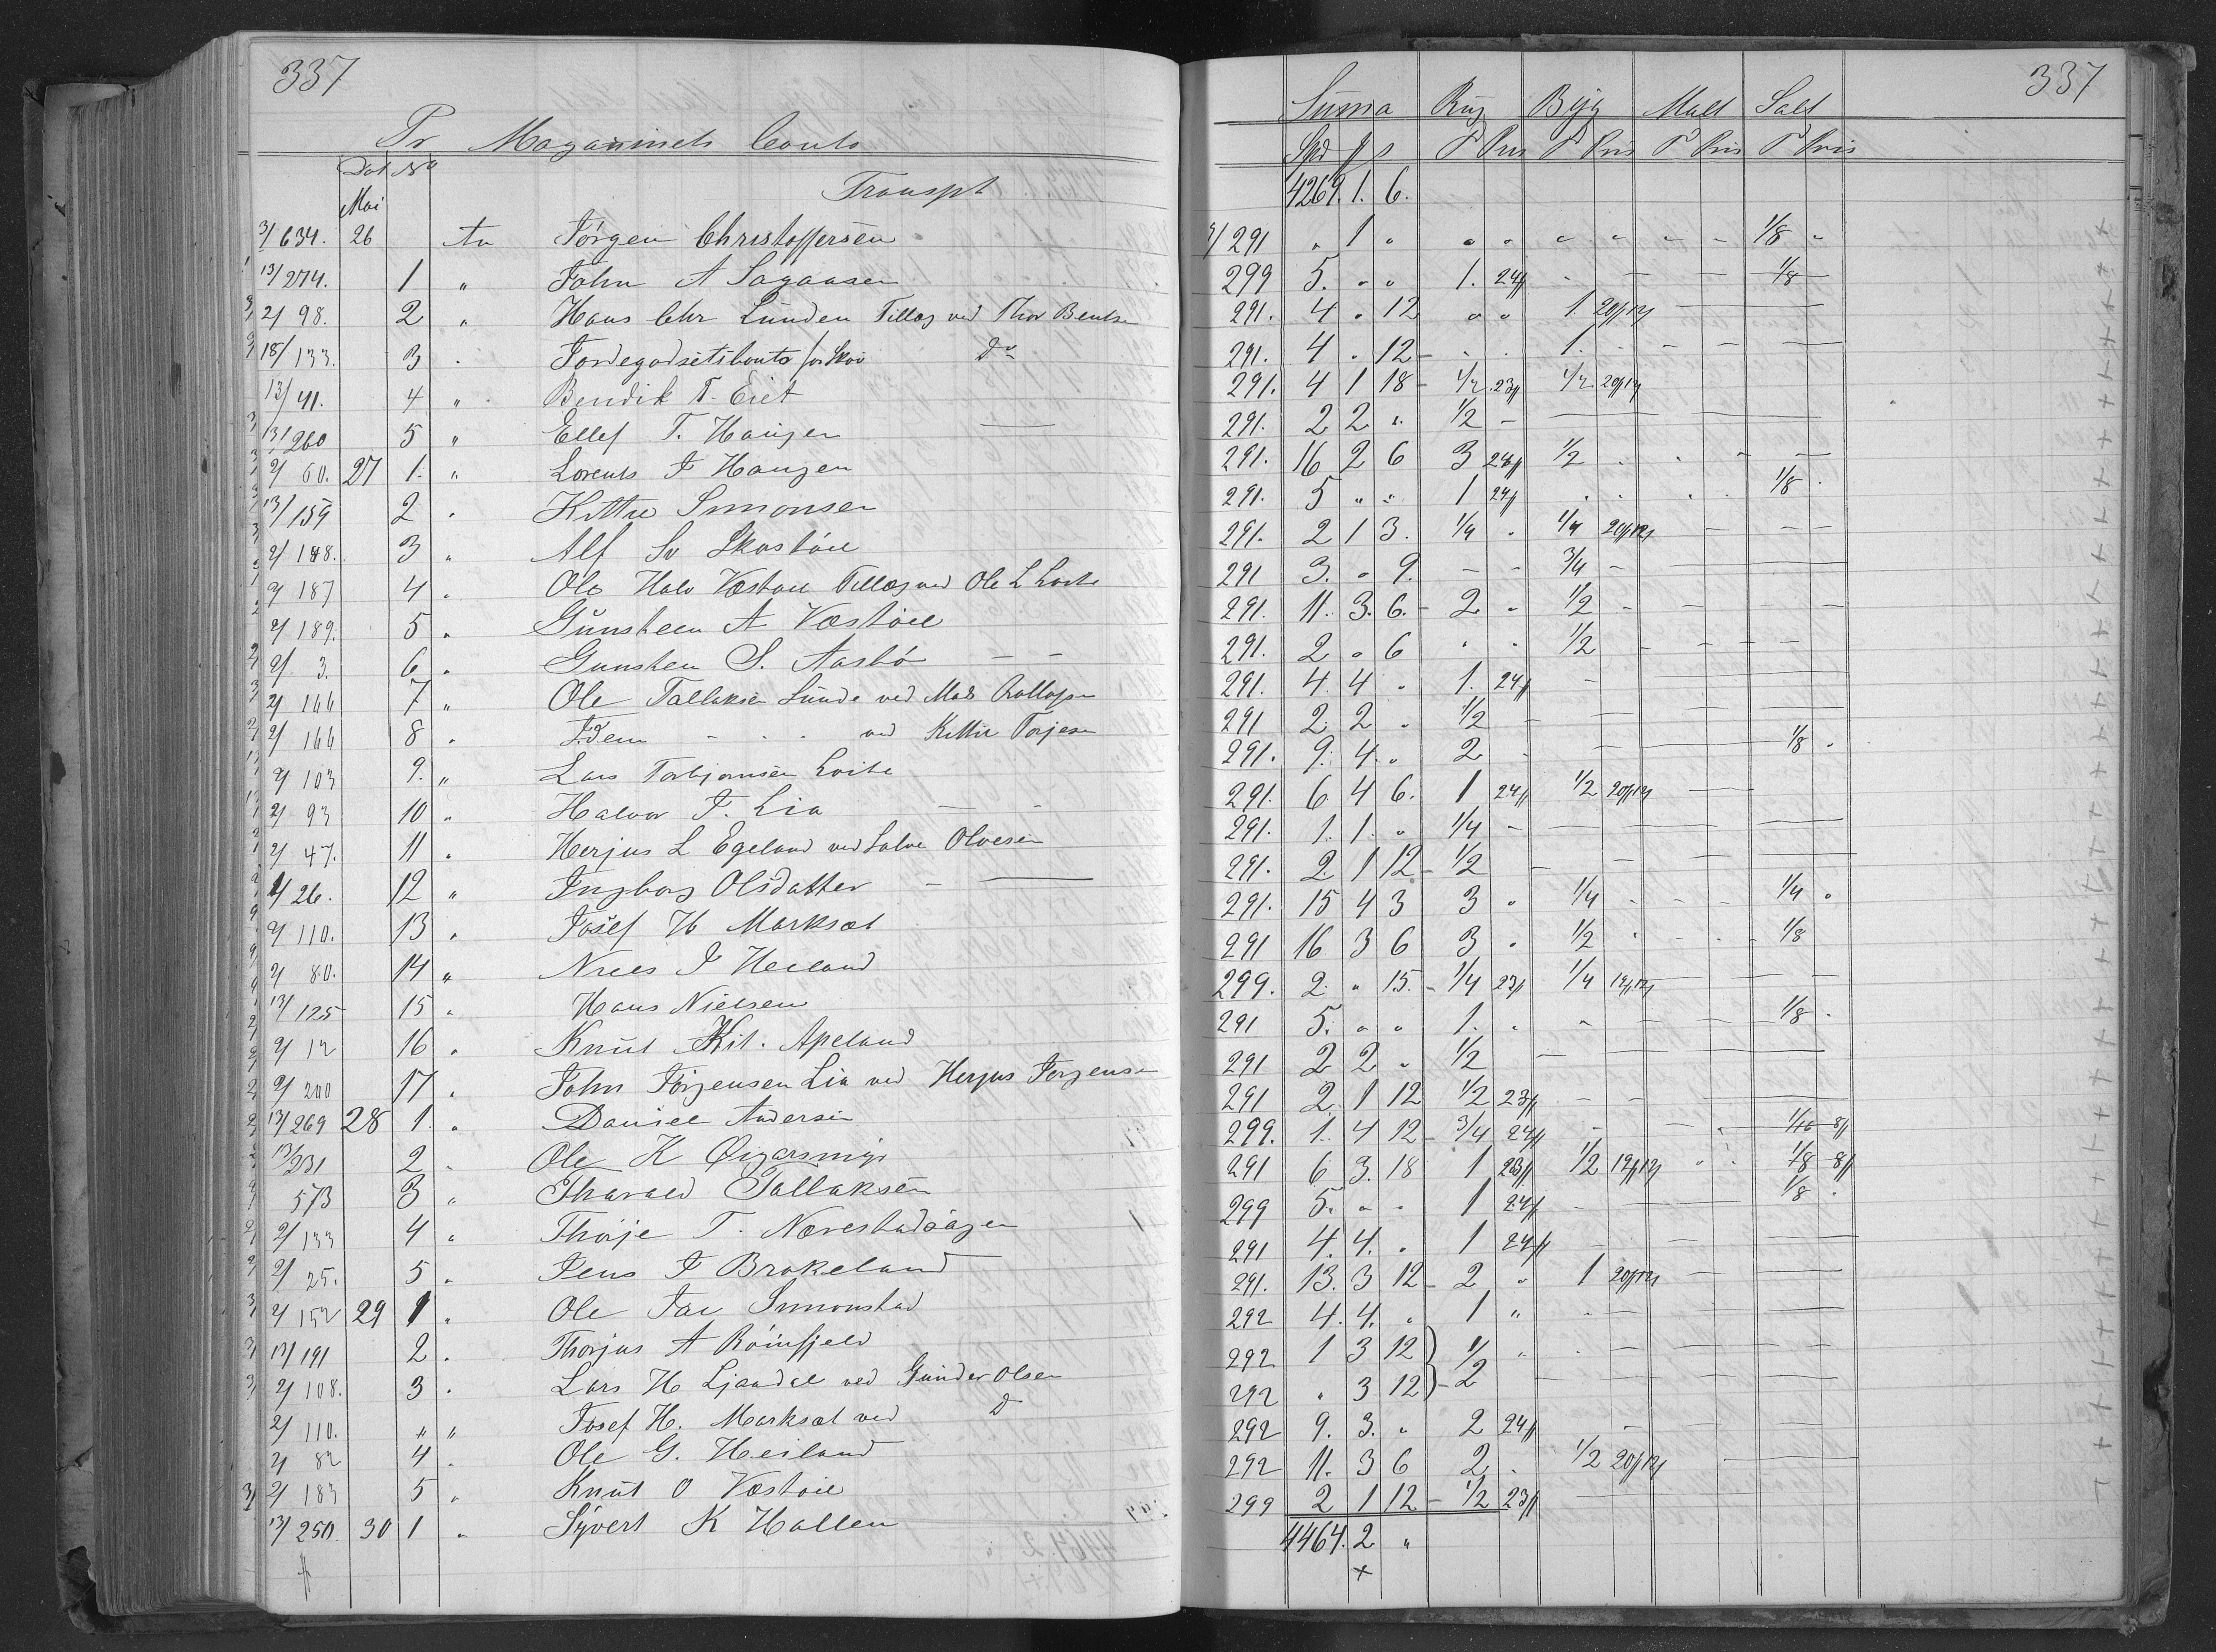 337
Pr Magazinets Conto
Dat No
Mai
Transpt
3/ 634. 26 An Jørgen Christoffersen
13/ 274. 1 " John A Sagaasen
2/ 98. 2 " Hans Chr Lunden Tillæg ved Thor Bentsen
18/ 133. 3 " Jordegodsetsconto for Skov Do
13/ 41. 4 " Bendik T. Eiet
13/ 260 5 " Ellef T. Haugen
2/ 60. 27 1. " Lorents J Haugen
13/ 159 2 " Kittil Simonsen
2/ 148. 3 " Alf Sv Skastøil
2/ 187 4 " Ole Halv Væstøil Tillæg ved Ole L Lovte
2/ 189. 5 " Gunsteen A Væstøil
2/ 3. 6 " Gunsten S. Aasbö
2/ 166 7 " Ole Tallaksen Lunde ved Mads
2/ 166 8 " Idem ved Kittil Torjesen
2/ 103 9. " Lars Torbjørnsen
2/ 93 10 " Halvor J. Lia
2/ 47. 11 " Herjus L Egeland ved Salve Olvesen
1/ 26. 12 " Ingborg Olsdatter
2/ 110. 13 " Josef H Marksæt
2/ 80. 14 " Niels J Heiland
13/ 125 15 " Hans Nielsen
2/ 12 16 " Knut Kit. Apeland
2/ 200 17 " John Jörgensen Lia ved Herjus Jørgensen
13/ 269 28 1. " Daniel Andersen
13/ 231 2 " Ole K
573 3 " Tharald Tallaksen
2/ 133 4 " Thorje T. Nævestadhaugen
2/ 25. 5 " Jens J Brokeland
2/ 152 29 1 " Ole Jac Simonstad
13/ 191 2 " Thorjus A Röinfjeld
2/ 108. 3 " Lars H Ljaadal ved Gunder Olsen
2/ 110. " " Josef H. Marksæt ved Do
2/ 82 4 " Ole G. Heiland
2/ 183 5 " Knut O Væstøil
13/ 250. 30 1 " Syvert K Hallen
337
Suma Rug Byg Malt Salt
Spd # s T Pris T Pris T Pris T Pris
4269. 1. 6.
3/ 291 " 1 " 1/8 "
299 5. " " 1. 24# 1/8
291. 4 " 12 " " 1. 20#12
291. 4 " 12 1.
291. 4 1 18 1/2 23# 1/2 20#12
291. 2 2 " 1/2
291. 16 2 6 3 24# 1/2
291. 5 " " 1 24# 1/8
291. 2 1 3. 1/4 " 1/4 20#12
291 3. " 9. 3/4
291. 11. 3. 6. 2 " 1/2
291. 2 " 6 1/2
291. 4. 4 " 1. 24#
291 2 2 " 1/2
291. 9. 4. " 2 1/8 "
291. 6 4 6. 1 24# 1/2 20#12
291. 1. 1. " 1/4
291. 2 1 12 1/2
291. 15 4 3 3 " 1/4 1/4 "
291 16 3 6 3 " 1/2 1/8
299. 2 " 15. 1/4 23# 1/4 19#12
291 5. " " 1. " 1/8
291 2 2 " 1/2
291 2 1 12 1/2 23#
299. 1. 4 12 3/4 24# 1/16 8#
291 6 3. 18 1 23# 1/2 19#12 1/8 8#
299 5. " " 1 24# 1/8 "
291 4. 4. " 1 24#
291. 13. 3 12 2 " 1 20#12
292 4. 4. " 1 "
292 1 3 12 1/2
292 " 3 12
292 9. 3. " 2 24#
292 11. 3 6 2 1/2 20#12
299 2 1 12 1/2 23#
4464. 2 "
+